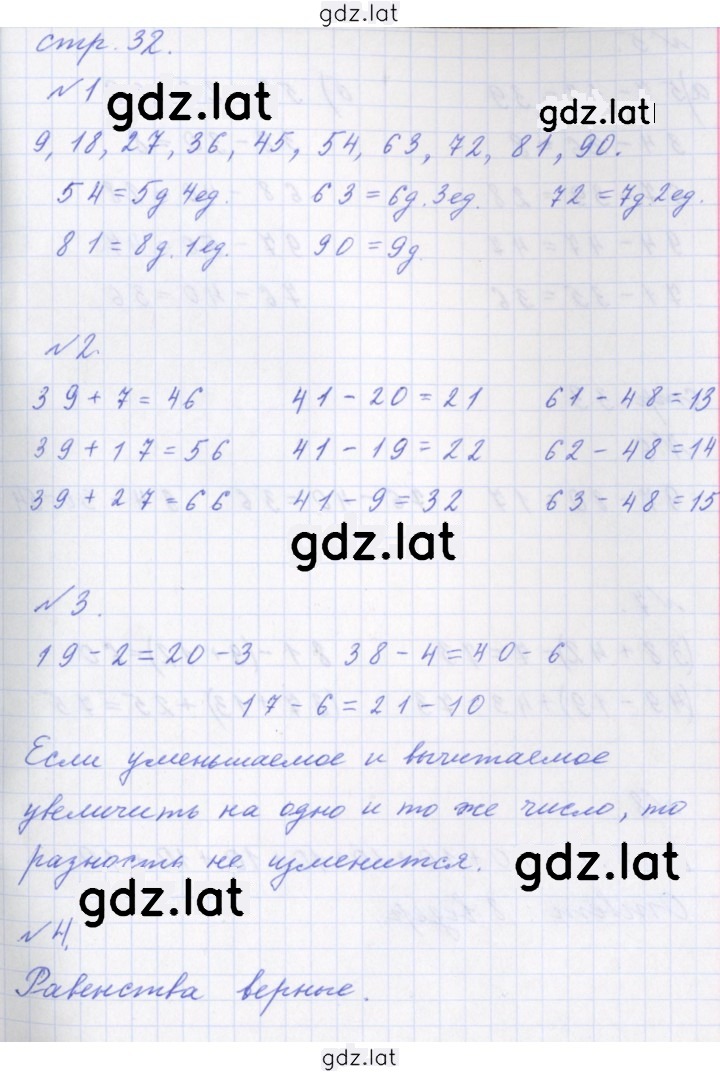 gdz.lat
стр. 32.
№1
gdz.lat
gdz.lat
9, 18, 27, 36, 45, 54, 63, 72, 81, 90.
54=5д 4ед. 63=6д. 3ед. 72=7д 2ед.
81=8д. 1ед. 90=9д
№2.
39+7=46 41-20=21 61-48=13
39+17=56 41-19=22 62-48=14
39+27=66 41-9=32 63-48=15
gdz.lat
№3.
19-2=20-3 38-4=40-6
17-6=21-10
Если уменьшаемое и вычитаемое
увеличить на одно и то же число, то
разность не изменится.
gdz.lat
gdz.lat
№4.
Равенства верные.
gdz.lat